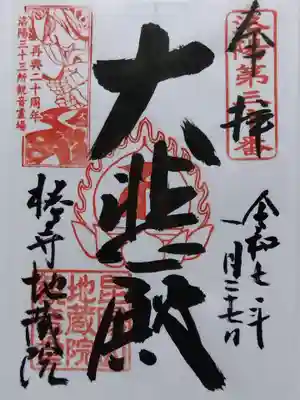 洛陽第三十番
奉拝
令和七年
月二十七日
大悲殿
再興二十周年
洛陽三十三所観音霊場
椿寺 地蔵院
地蔵院